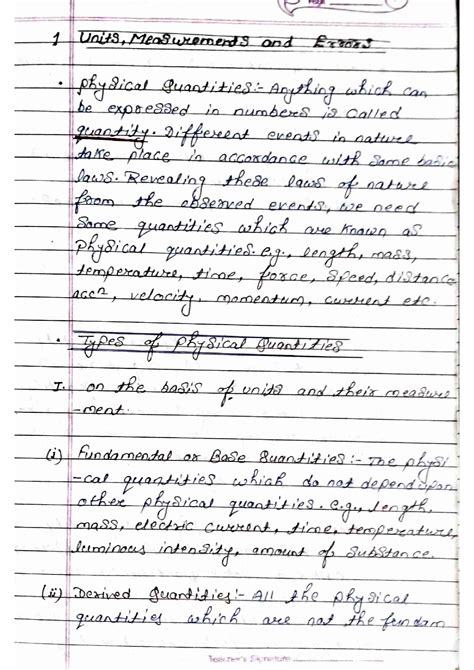 Page
1 Units, Measurements and Errors
• Physical Quantities:- Anything which can
be expressed in numbers is Called
quantity. Different events in nature
take place in accordance with some basic
laws. Revealing these laws of nature
from the observed events, we need
some quantities which are known as
physical quantities. e.g., length, mass,
temperature, time, force, speed, distance
accⁿ, velocity, momentum, current etc.
• Types of Physical Quantities
I. on the basis of units and their measure
-ment.
(i) Fundamental or Base Quantities:- The physi
-cal quantities which do not depend upon
other physical quantities. e.g., length,
mass, electric current, time, temperature,
luminous intensity, amount of substance.
(ii) Derived Quantities:- All the physical
quantities which are not the fundam
Teacher's Signature